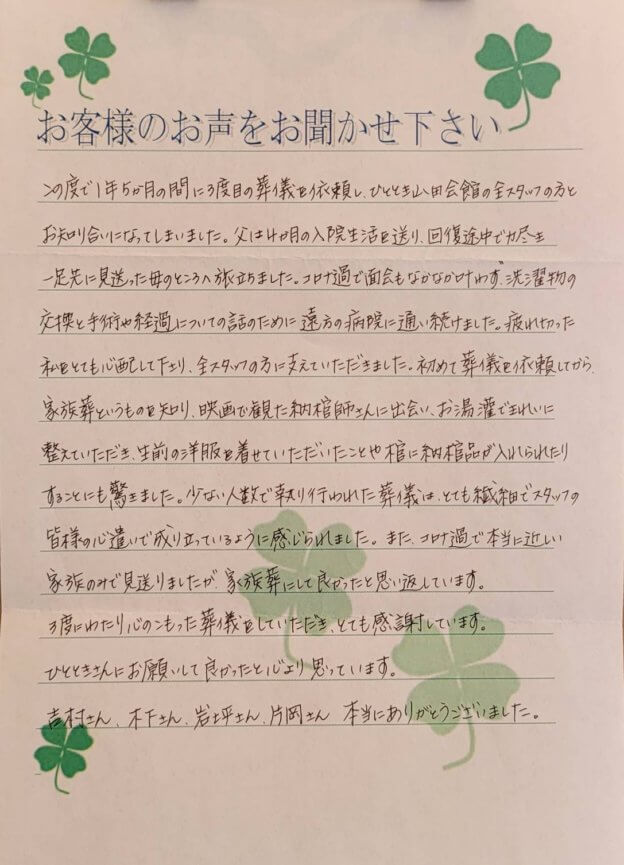 お客様のお声をお聞かせ下さい
この度で1年5か月の間に3度目の葬儀を依頼し、ひととき山田会館の全スタッフの方と
お知り合いになってしまいました。父は4か月の入院生活を送り、回復途中で力尽き
一足先に見送った母のところへ旅立ちました。コロナ過で面会もなかなか叶わず、洗濯物の
交換と手術や経過についての話のために遠方の病院に通い続けました。疲れ切った
私をとても心配して下さり、全スタッフの方に支えていただきました。初めて葬儀を依頼してから、
家族葬というものを知り、映画で観た納棺師さんに出会い、お湯灌できれいに
整えていただき、生前の洋服を着せていただいたことや棺に納棺品が入れられたり
することにも驚きました。少ない人数で執り行われた葬儀は、とても繊細でスタッフの
皆様の心遣いで成り立っているように感じられました。また、コロナ過で本当に近しい
家族のみで見送りましたが、家族葬にして良かったと思い返しています。
3度にわたり心のこもった葬儀をしていただき、とても感謝しています。
ひとときさんにお願いして良かったと心より思っています。
吉村さん、木下さん、岩坪さん、片岡さん 本当にありがとうございました。